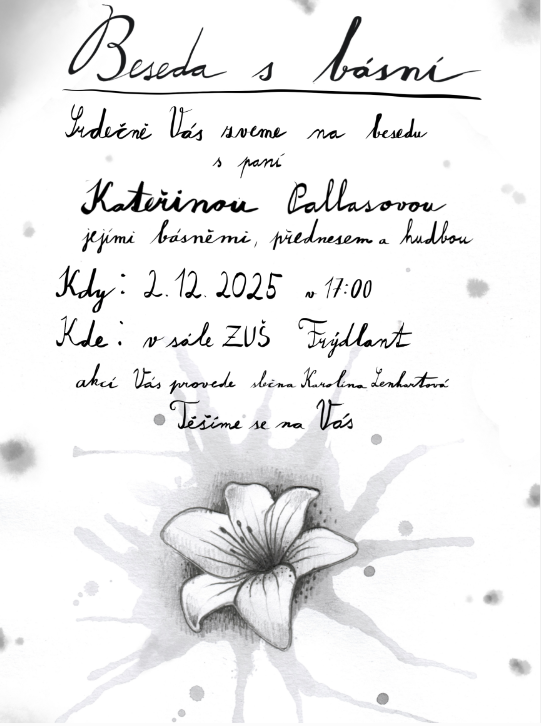 Beseda s básní
Srdečně Vás zveme na besedu
s paní
Kateřinou Pallasovou
jejími básněmi, přednesem a hudbou
Kdy: 2.12.2025 v 17:00
Kde: v sále ZUŠ Frýdlant
akcí Vás provede slečna Karolína Lenhartová
Těšíme se na Vás